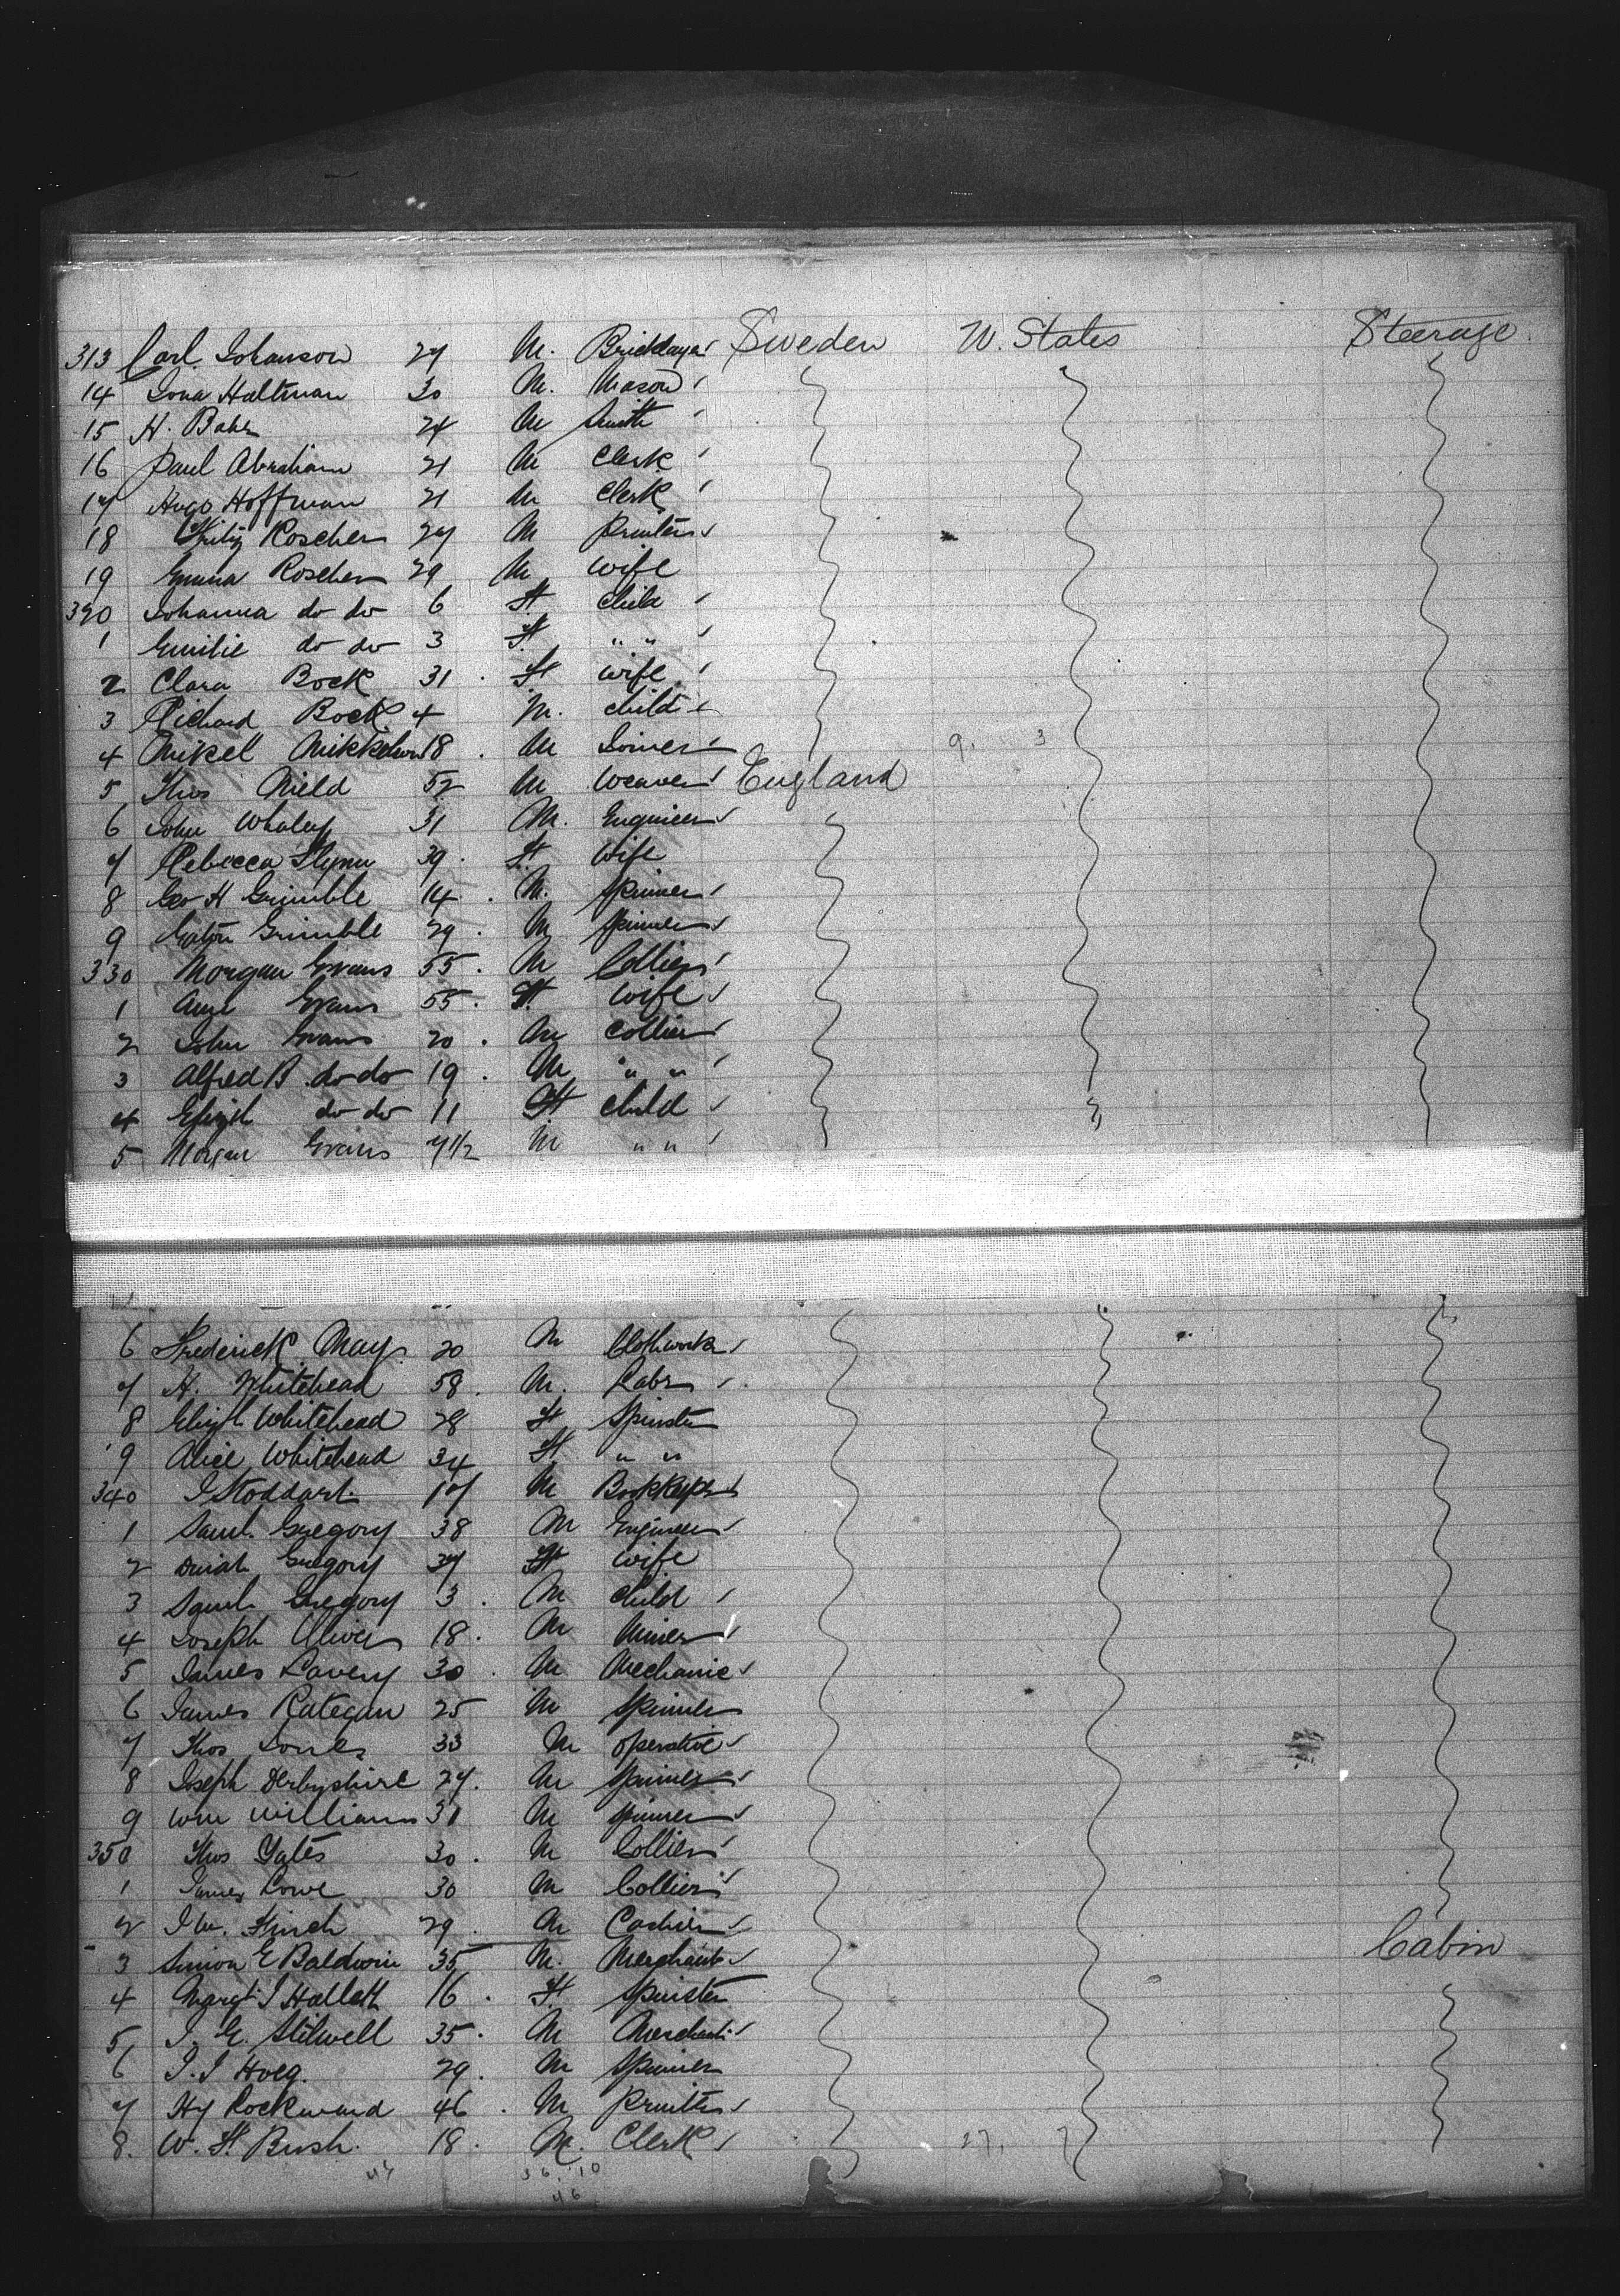 313 Carl Johanson 27 M. Bricklayer Sweden U. States Steerage
14 Haltman 30 M. Mason
15 H. 24 M Smith
16 Paul Abraham 21 M Clerk
17 Hugo Hoffman 21 M Clerk
18 Roscher 27 M Printer
19 Emma Roscher 29 M Wife
320 Johanna do do 6 F child
1 Emilie do do 3 F " "
2 Clara Bock 31 F wife
3 Richard Bock 4 M. child
4 Mikel Mikkelson 18 M Joiner 9. 3
5 Thos Nield 52 M Weaver England
6 John Whaley 31 M. Engineer
7 Rebecca Flynn 39 F Wife
8 Geo H Grimble 14 M. Spinner
9 Grimble 29 M Spinner
330 Morgan Evans 55 M Collier
1 Evans 55 F Wife
2 John Evans 20 M Collier
3 Alfred B do do 19 M " "
4 do do 11 F child
5 Morgan Evans 7 1/2 M " "
6 Frederick May 20 M Clothworker
7 H. Whitehead 58 M. Labr
8 Whitehead 28 F Spinster
9 Alice Whitehead 34 F " "
340 J Stoddart 17 M Bookkeeper
1 Saml. Gregory 38 M Engineer
2 Gregory 37 F Wife
3 Saml. Gregory 3 M child
4 Joseph Oliver 18 M Miner
5 James Lavery 30 M Mechanic
6 James Rategan 25 M Spinner
7 Thos Jones 33 M Operative
8 Joseph Derbyshire 27 M Spinner
9 Wm Williams 31 M Spinner
350 Thos Yates 30 M Collier
1 James Lowe 30 M Collier
2 J W. Finch 29 M Cashier
3 Simon E Baldwin 35 M. Merchant Cabin
4 Margt J Hallett 16 F Spinster
5 J. E. Stilwell 35 M Merchant
6 J. J Hoeg. 29 M Spinner
7 Hy Rockward 46 M Printer
8. W. H. Bush. 18 M. Clerk 27. 7
44 36. 10
46